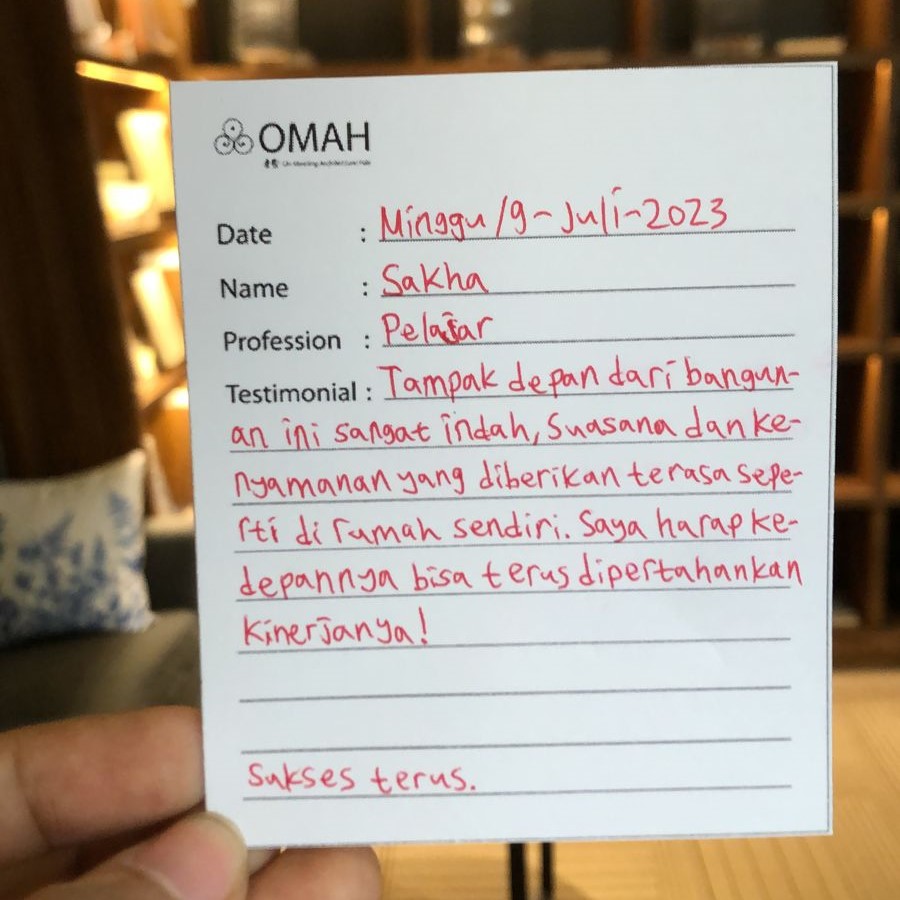 OMAH
Date : Minggu /9-Juli-2023
Name : Sakha
Profession : Pelajar
Testimonial : Tampak depan dari bangun-
an ini sangat indah, Suasana dan ke-
nyamanan yang diberikan terasa sepe-
rti di rumah sendiri. Saya harap ke-
depannya bisa terus dipertahankan
kinerjanya!
Sukses terus.